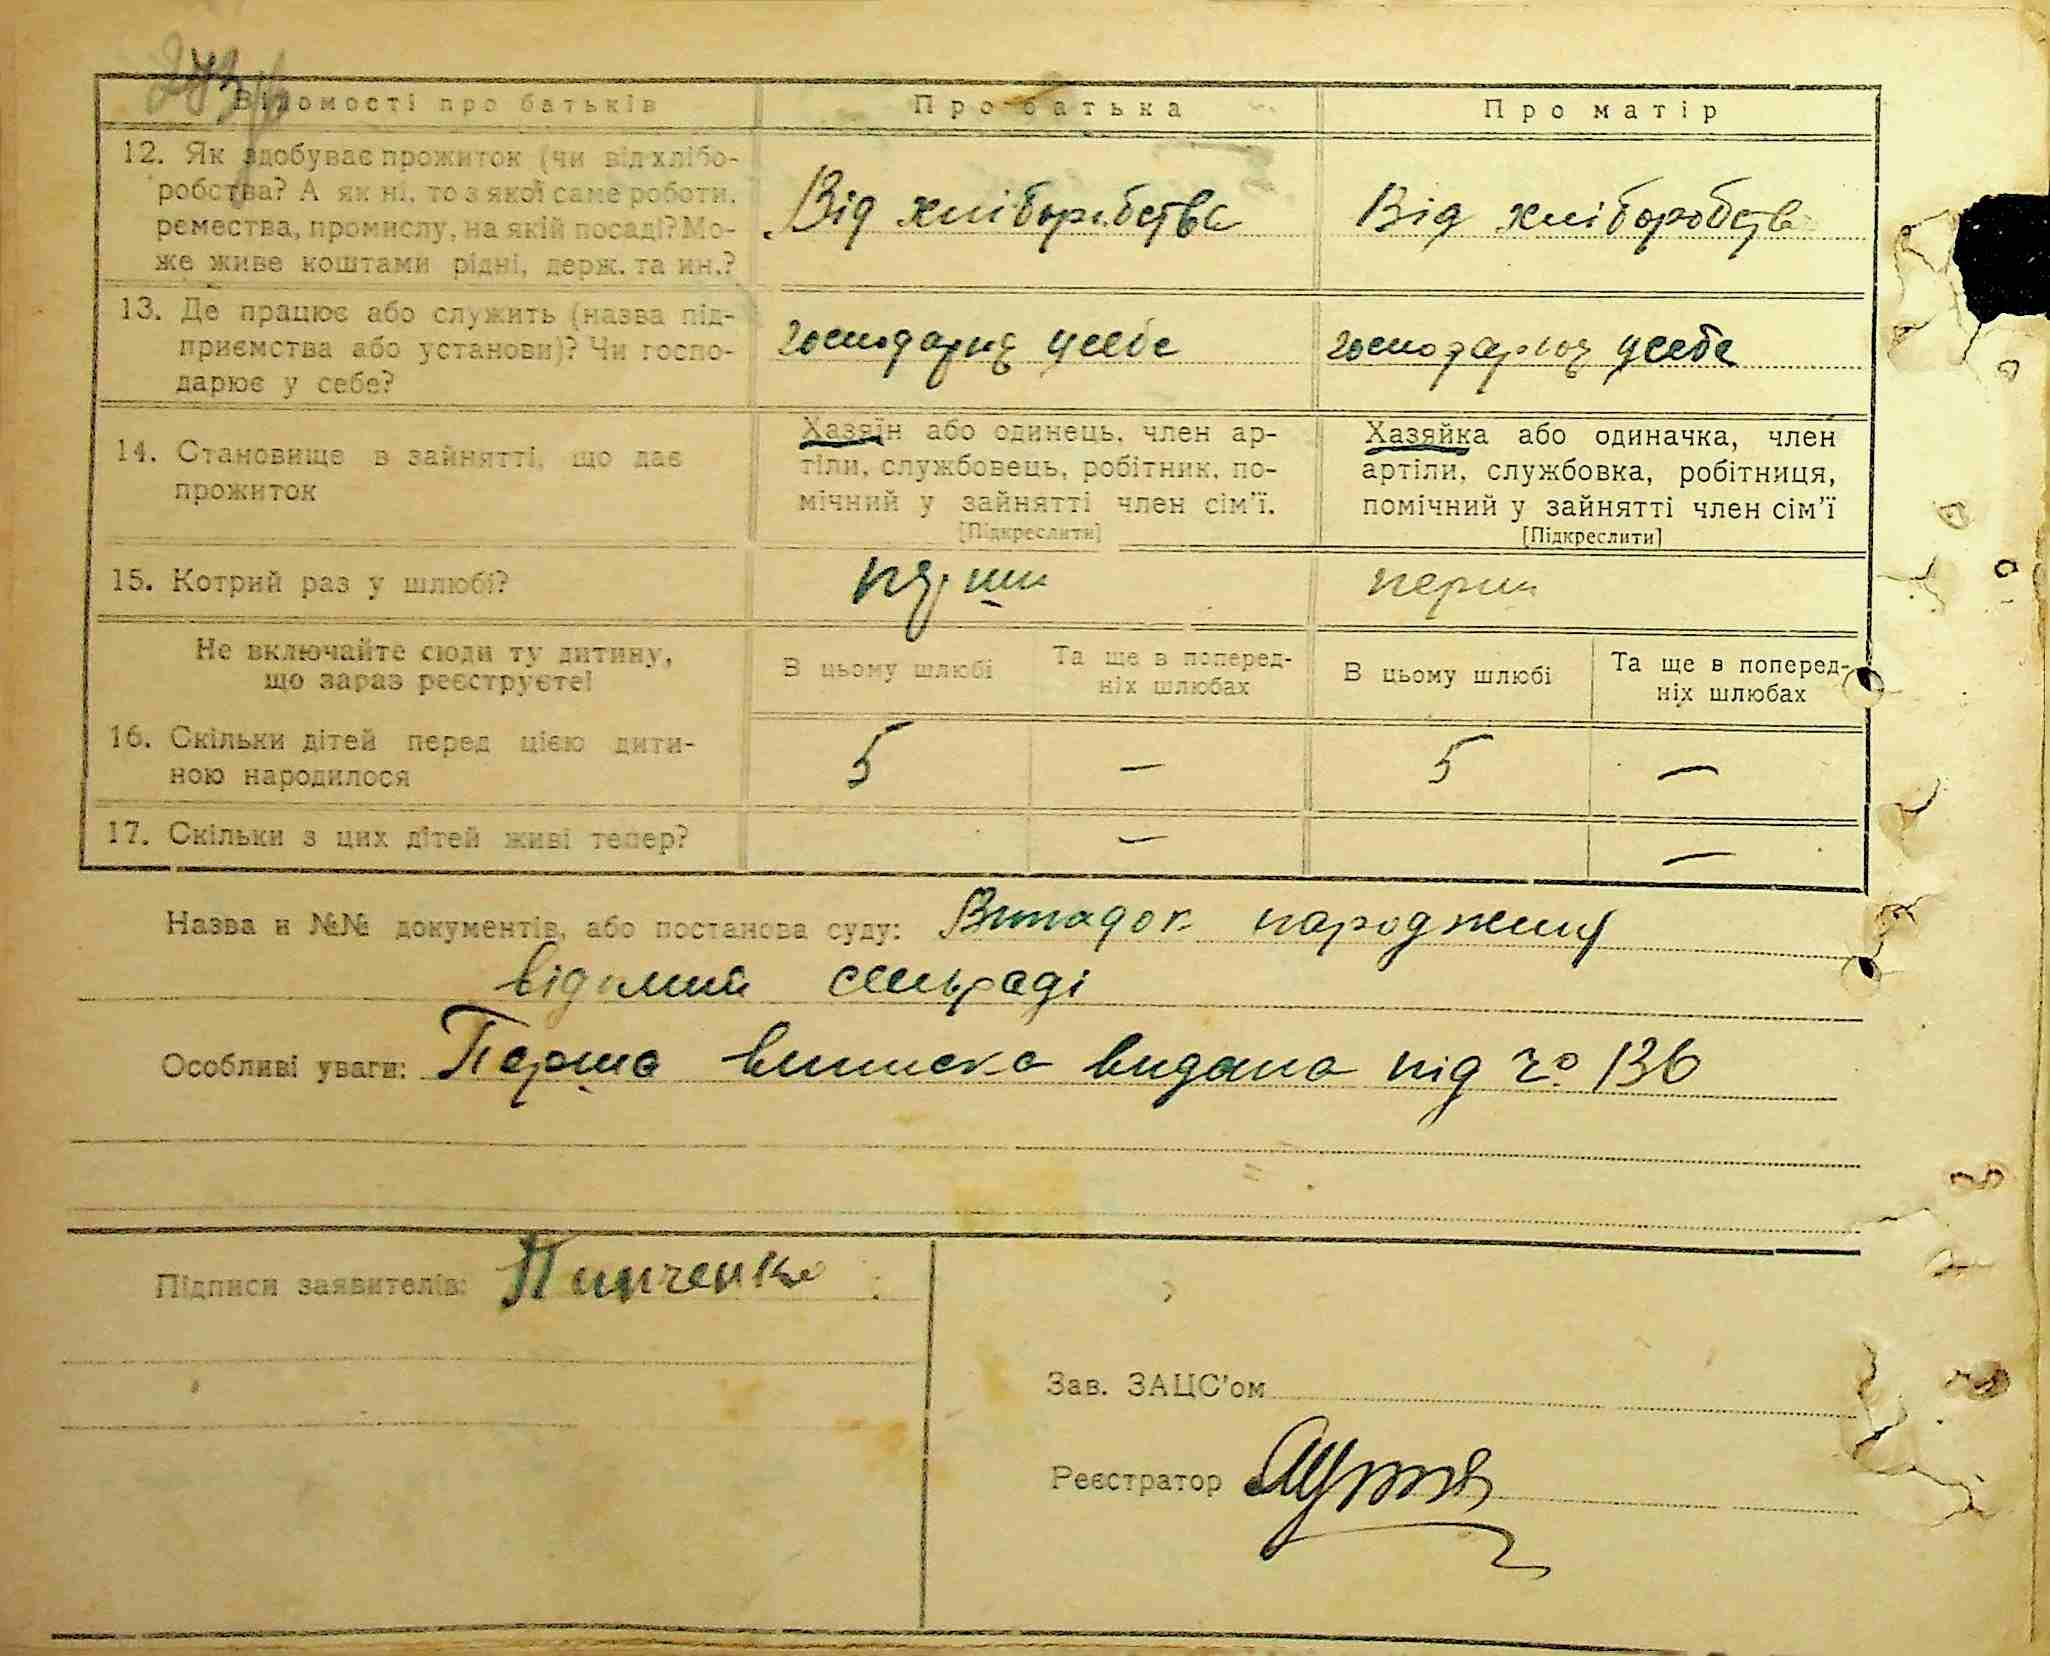 Відомості про батьків Про батька Про матір
12. Як здобуває прожиток (чи від хлібо-
робства? А як ні, то з якої саме роботи,
ремества, промислу, на якій посаді? Мо-
же живе коштами рідні, держ. та ин.?
Від хліборобства Від хліборобств
13. Де працює або служить (назва під-
приємства або установи)? Чи госпо-
дарює у себе?
господарює у себе господарює у себе
14. Становище в зайнятті, що дає
прожиток
Хазяїн або одинець, член ар-
тіли, службовець, робітник, по-
мічний у зайнятті член сім'ї.
[Підкреслити]
Хазяйка або одиначка, член
артіли, службовка, робітниця,
помічний у зайнятті член сім'ї
[Підкреслити]
15. Котрий раз у шлюбі? перши
Не включайте сюди ту дитину,
що зараз реєструєте!
В цьому шлюбі Та ще в поперед-
ніх шлюбах
В цьому шлюбі Та ще в поперед-
ніх шлюбах
16. Скільки дітей перед цією дити-
ною народилося
5 — 5 —
17. Скільки з цих дітей живі тепер? — —
Назва и №№ документів, або постанова суду: Випадок народження
відомий сельраді
Особливі уваги: Перша виписка видана під ч. 136
Підписи заявителів:
Зав. ЗАЦС'ом
Реєстратор